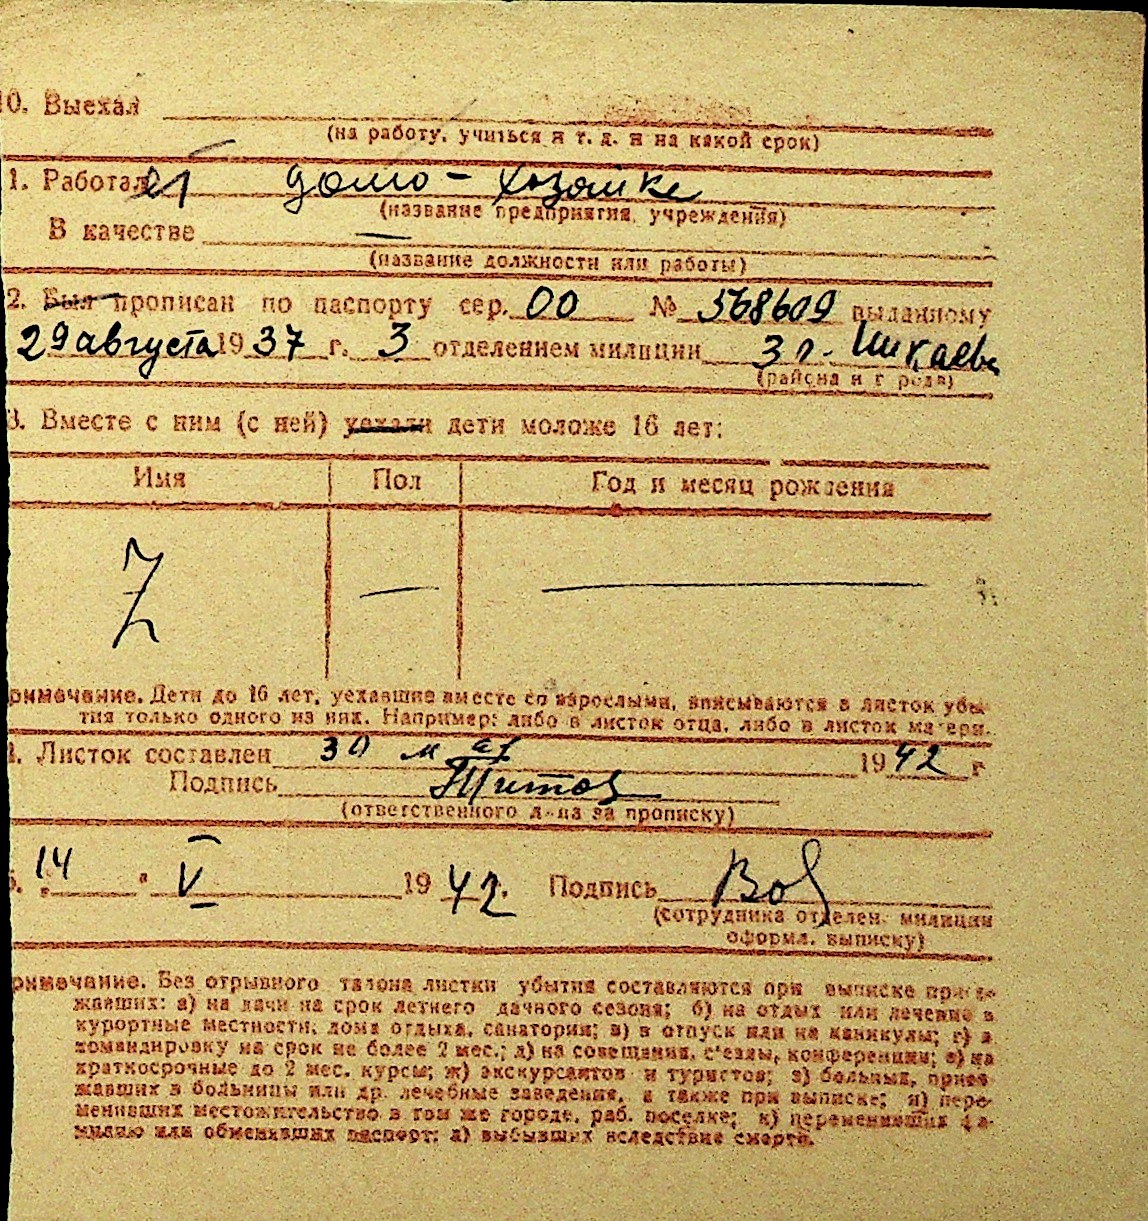 10. Выехал
(на работу, учиться и т. д. и на какой срок)
1. Работает домо-хозяйке
(название предприятия, учреждения)
В качестве —
(название должности или работы)
2. Был прописан по паспорту сер. 00 № 568609 выданному
29 августа 1937 г. 3 отделением милиции 3 о.
(района и города)
3. Вместе с ним (с ней) уехали дети моложе 16 лет:
Имя Пол Год и месяц рождения
Z — —
римечание. Дети до 16 лет, уехавшие вместе со взрослыми, вписываются в листок убы-
тия только одного из них. Например: либо в листок отца, либо в листок матери.
4. Листок составлен 30 м ая 1942 г
Подпись Титов
(ответственного л-ца за прописку)
5. 14 " V 1942. Подпись
(сотрудника отделен. милиции
оформл. выписку)
римечание. Без отрывного талона листки убытия составляются при выписке приез-
жавших: а) на дачи на срок летнего дачного сезона; б) на отдых или лечение в
курортные местности, дома отдыха, санатории; в) в отпуск или на каникулы; г) в
командировку на срок не более 2 мес.; д) на совещания, с'езды, конференции; е) на
краткосрочные до 2 мес. курсы; ж) экскурсантов и туристов; з) больных, приез
жавших в больницы или др. лечебные заведения, а также при выписке; и) пере-
менивших местожительство в том же городе, раб. поселке; к) переменивших фа-
милию или обменявших паспорт; л) выбывших вследствие смерти.